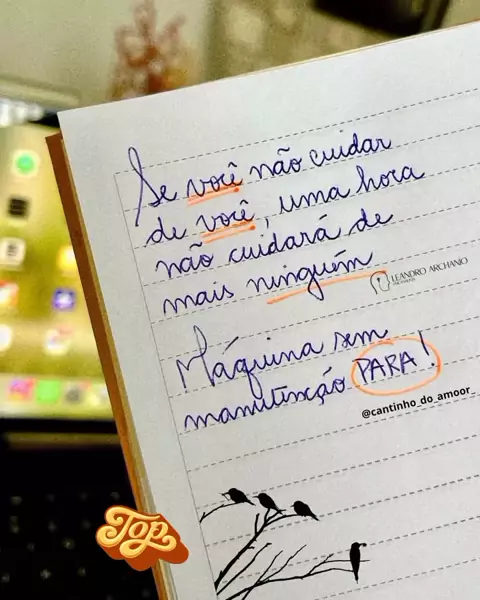 Se você não cuidar
de você, uma hora
não cuidará de
mais ninguém
LEANDRO ARCHANJO
Máquina sem
manutenção PARA!
@cantinho_do_amoor_
Top